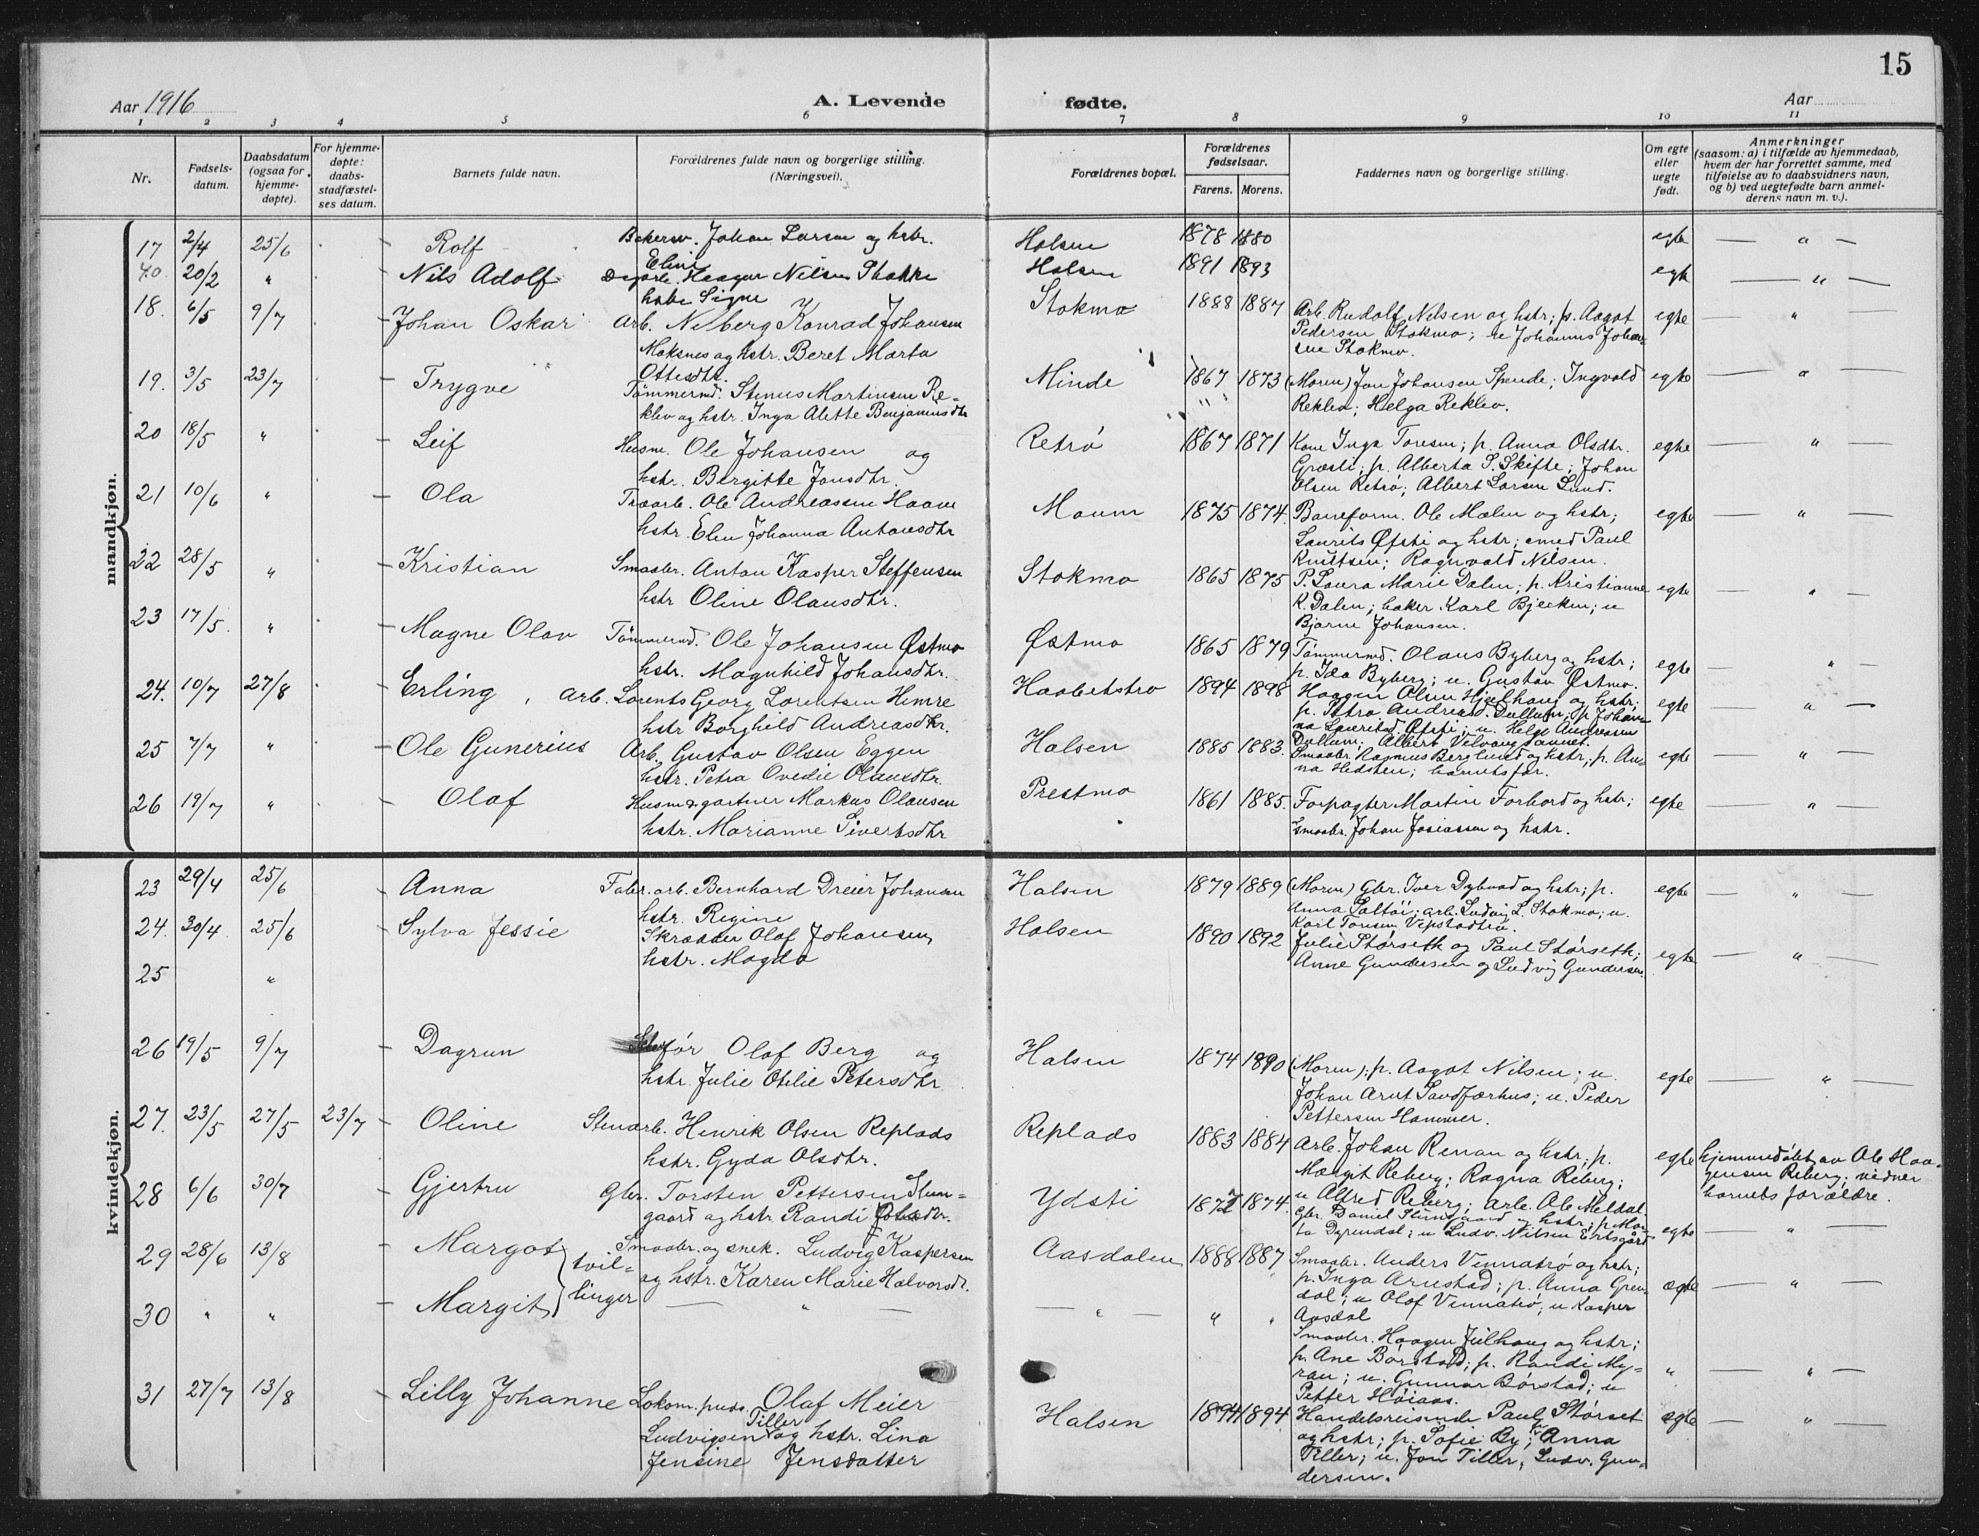 15
Aar 1916
A. Levende fødte.
Aar
1 2 3 4 5 6 7 8 9 10 11
Nr.
Fødsels-
datum.
Daabsdatum
(ogsaa for
hjemme-
døpte).
For hjemme-
døpte:
daabs-
stadfæstel-
ses datum.
Barnets fulde navn.
Forældrenes fulde navn og borgerlige stilling.
(Næringsvei).
Forældrenes bopæl.
Forældrenes
fødselsaar.
Farens. Morens.
Faddernes navn og borgerlige stilling.
Om egte
eller
uegte
født.
Anmerkninger
(saasom: a) i tilfælde av hjemmedaab,
hvem der har forrettet samme, med
tilføielse av to daabsvidners navn,
og b) ved uegtefødte barn anmel-
derens navn m. v.).
mandkjøn.
17 2/4 25/6 Rolf Bakersv. Johan Larsen og hstr. Halsen 1878 1880 egte — " —
Elini
40. 20/2 " Nils Adolf Haagen Nilsen Stokke Halsen 1891 1893 egte — " —
hstr Signe
18. 6/5 9/7 Johan Oskar Arb. Nilberg Konrad Johansen Stokmo 1888 1887 Arb. Rudolf Nilsen og hstr; p. Aagot egte — " —
Moksnes og hstr. Beret Marta Pedersen Stokmo; u Johannes Johan-
Ottesdtr. sen Stokmo.
19. 3/5 23/7 Trygve Tømmermd. Stenus Martinsen Re- Minde 1867 1873 (Moren) Jon Johansen Spende; Ingvald egte — " —
klev og hstr. Inga Alette Benjaminsdtr Reklev; Helga Reklev.
20 18/5 " Leif Husm. Ole Johansen og Retrø 1867 1871 Kone Inga Toresen; p. Anna Olsdtr. egte — " —
hstr. Bergitte Jonsdtr. Græsli; p. Alberta S. Skifte; Johan
Olsen Retrø; Albert Larsen Lund.
21 10/6 " Ola Træarb. Ole Andreassen Haave Maum 1875 1874. Baneform. Ole Mælen og hstr; egte — " —
hstr. Elen Johanna Antonsdtr Laurits Øfsti og hstr; smed Paul
Knutsen; Ragnvald Nilsen.
22 28/5 " Kristian Smaabr. Anton Kasper Steffensen Stokmo 1865 1875 P. Laura Marie Dalen; p. Kristianne egte — " —
hstr Oline Olausdtr. K. Dalen; baker Karl Bjerken; u
Bjarne Johansen.
23 17/5. " Magne Olav Tømmermd. Ole Johansen Østmo Østmo 1865 1879 Tømmermd. Olaus Byberg og hstr; egte — " —
hstr. Magnhild Johansdtr. p. Ida Byberg; u. Gustav Østmo.
24. 10/7 27/8 Erling, Arb. Lorents Georg Lorentsen Himre Haabetstrø 1894 1898 Haagen Olsen Hjelhaug og hstr; egte — " —
hstr Borghild Andreasdtr. p. Petra Andreasd. Dullum; p. Johan-
na Lauritsd. Øfsti; u. Helge Andreasen
25 7/7 " Ole Gunerius Arb. Gustav Olsen Eggen Halsen 1885 1883. Dullum. Albert Velvang
hstr. Petra Ovedie Olausdtr. Smaabr. Rasmus Berglund og hstr; p. An- egte — " —
na Hedsten; barnets far.
26 19/7 " Olaf Husm & gartner Markus Olausen Prestmo 1861 1885. Forpagter Martin Forbord og hstr; egte — " —
hstr. Marianne Sivertsdtr Smaabr. Johan Josiassen og hstr.
kvindekjøn.
23 29/4 25/6 Anna Fabr. arb. Bernhard Dreier Johansen Halsen 1879 1889 (Moren) Gbr. Iver Dybvad og hstr; p. egte — " —
hstr. Regine Anna Saltøi; arb. Ludvig L. Stokmo; u.
24. 30/4. 25/6 Sylva Jessie Skrædder Olaf Johansen, Halsen 1890 1892 Karl Tonsen Vepstadtrø.
hstr. Magda Julie Størseth og Paul Størseth; egte — " —
Anne Gundersen og Ludvig Gundersen
25 "
26 19/5 9/7 Dagrun før Olaf Berg og Halsen 1874 1890 (Moren); p. Aagot Nilsen; u. egte — " —
hstr. Julie Otilie Petersdtr Johan Arnt Sandfærhus; u. Peder
Pettersen Hammer.
27. 23/5 27/5 23/7 Oline Stenarb. Henrik Olsen Replads Replads 1883 1884 Arb. Johan Renan og hstr; p. egte hjemmedøbt av Ole Haa-
hstr. Gyda Olsdtr. Margit Reberg; Ragna Reberg; gensen Reberg; vidner
u Alfred Reberg; Arb. Ole Meldal. barnets forældre.
28 6/6 30/7 Gjertru Gbr. Torsten Pettersen Slun- Ydsti 1872 1874. Gbr. Daniel Slungaard og hstr; p. Mar- egte — " —
gaard og hstr Randi ta Dyrendal; u Ludv. Nilsen Ertsgård
29 28/6 13/8 Margot tvil- Smaabr. og snek. Ludvig Kaspersen Aasdalen 1888 1887 Smaabr. Anders Vennatrø og hstr; ægte — " —
og hstr. Karen Marie Halvorsdt. p. Inga Arnstad; p. Anna Gren-
30 " " Margit linger — " — — " — " " dal; u Olaf Vennatrø; u Kasper
Aasdal
Smaabr. Haagen Julhaug og hstr;
p. Ane Børstad; p. Randi My- " — " —
ran; u. Gunnar Børstad; u
Petter Høiaas.
31 27/7 13/8 Lilly Johanne Lokom. puds. Olaf Meier Halsen 1894 1894 Handelsreisende Paul Størset ægte — " —
Tiller
Ludvigsen og hstr. Lina og hstr; p. Sofie By; Anna
Jensine Jensdatter Tiller; u. Jon Tiller, Ludv. Gun-
dersen.